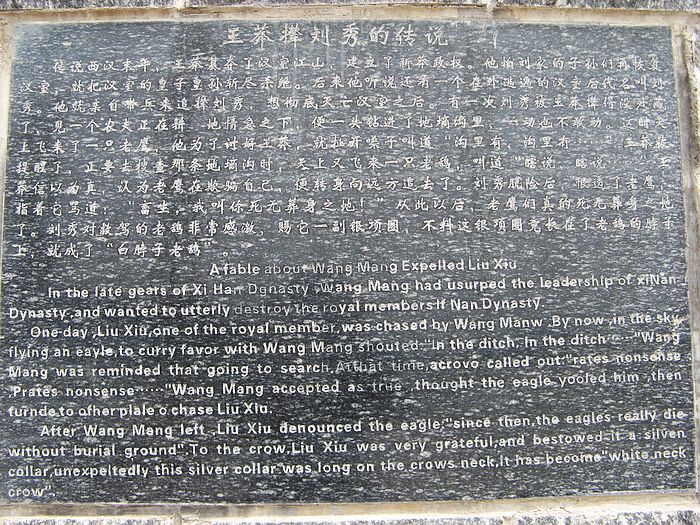 王莽撵刘秀的传说
传说西汉末年，王莽篡夺了汉室江山，建立了新莽政权。他怕刘家的子孙们再恢复
汉室，就把汉室的皇子皇孙斩尽杀绝。后来他听说还有一个在外逃逸的汉室后代名叫刘
秀。他就亲自带兵来追撵刘秀，想彻底灭亡汉室之后。有一次刘秀被王莽撵得没处藏
了，见一个农夫正在耕地情急之下，便一头钻进了地墒沟里，一动也不敢动。这时天
上飞来了一只老鹰，他为了讨好王莽，就拉开嗓子叫道“沟里有……沟里有……”王莽被
提醒了，正要去搜查那条地墒沟时，天上又飞来一只老鸹，叫道“瞎说……瞎说……”王
莽信以为真，认为老鹰在欺骗自己，便转身向远方追去了。刘秀脱险后，恨透了老鹰，
指着它骂道：“畜生，我叫你死无葬身之地！”从此以后，老鹰们真的死无葬身之地
了。刘秀对救驾的老鸹非常感激，赐它一副银项圈，不料这银项圈竟长在了老鸹的脖子
上，就成了“白脖子老鸹”。
A fable about Wang Mang Expelled Liu Xiu
In the late gears of Xi Han Dgnasty ,Wang Mang had usurped the leadership of xiNan
Dynasty,and wanted to utterly destroy the royal members If Nan Dynasty.
One day ,Liu Xiu,one of the royal member,was chased by Wang Manw .By now ,in the sky
flying an eayle,to curry favor with Wang Mang shouted:"In the ditch, In the ditch……"Wang
Mang was reminded that going to search,Atthat time,acrovo called out:"rates nonsense
.Prates nonsense……"Wang Mang accepted as true ,thought the eagle yoofed him ,then
furnde to ofher plale o chase Liu Xiu.
After Wang Mang left ,Liu Xiu denounced the eagle:"since then,the eagles really die
without burial ground".To the crow,Liu Xiu was very grateful,and bestowed it a silven
collar,unexpeltedly this silver collar was long on the crows neck,it has become"white neck
crow".